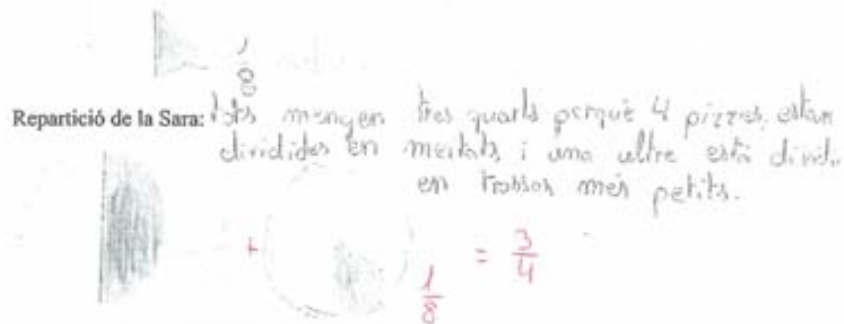 1/8
Repartició de la Sara: tots mengen tres quarts perquè 4 pizzes estan
dividides en meitats i una altre està divid.
en trossos més petits.
+ 1/8 = 3/4